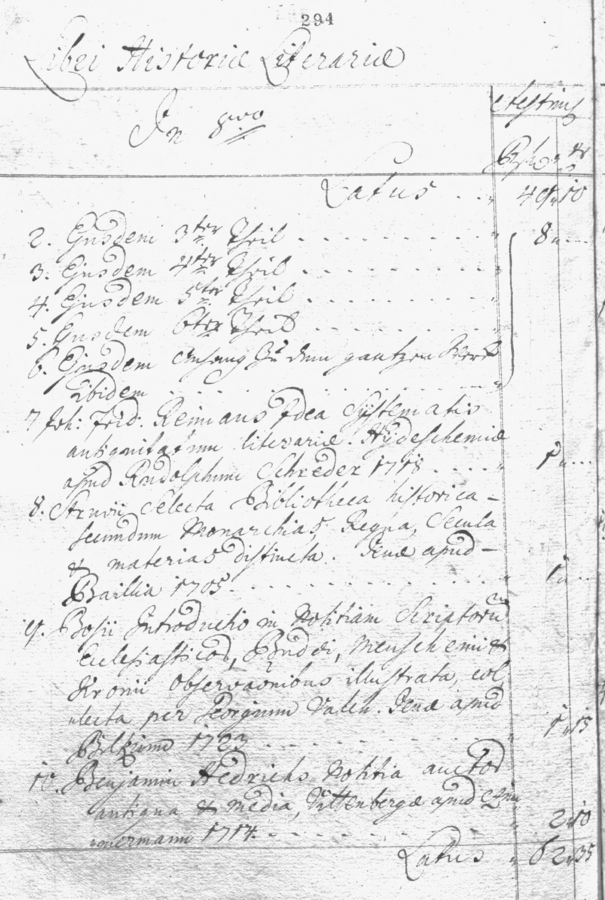 294
Libri Historiæ Literariæ
In 8vo
Æstimᵍ
Rh. xr
Latus . . . 49 " 10
2. Ejusdem 3ter Theil . . . . . . . 8 " . . .
3. Ejusdem 4ter Theil . . . . . . .
4. Ejusdem 5ter Theil . . . . . . .
5. Ejusdem 6ter Theil . . . . . . .
6. Ejusdem Anhang zu dem gantzen Werk
Ibidem . . . . . . . . . .
7. Joh: Frid: Reimans Idea Systematis
antiquitatum literariæ. Hydeschemiæ
apud Rudolphum Schreder 1718 . . . . 1 " . . .
8. Struvii Selecta Bibliotheca historica –
secundum Monarchias, Regna, Secula
& materias distincta. Jenæ apud –
Bailiia 1705 . . . . . . . . . . 1 " . . .
9. Bosii Introductio in Notitiam Scriptorū
Ecclesiasticor, Buddei, Menschenii &
Kronii observaonibus illustrata, col
lecta per Georgium Valch. Jenæ apud
Belkium 1723 . . . . . . . . . . 1 " 15
10. Benjamin Hedrichs Notitia auctor
antiqua & media, Vittenbergæ apud Zim
mermann 1714 . . . . . . . . . . 2 " 10
Latus " 62 " 35